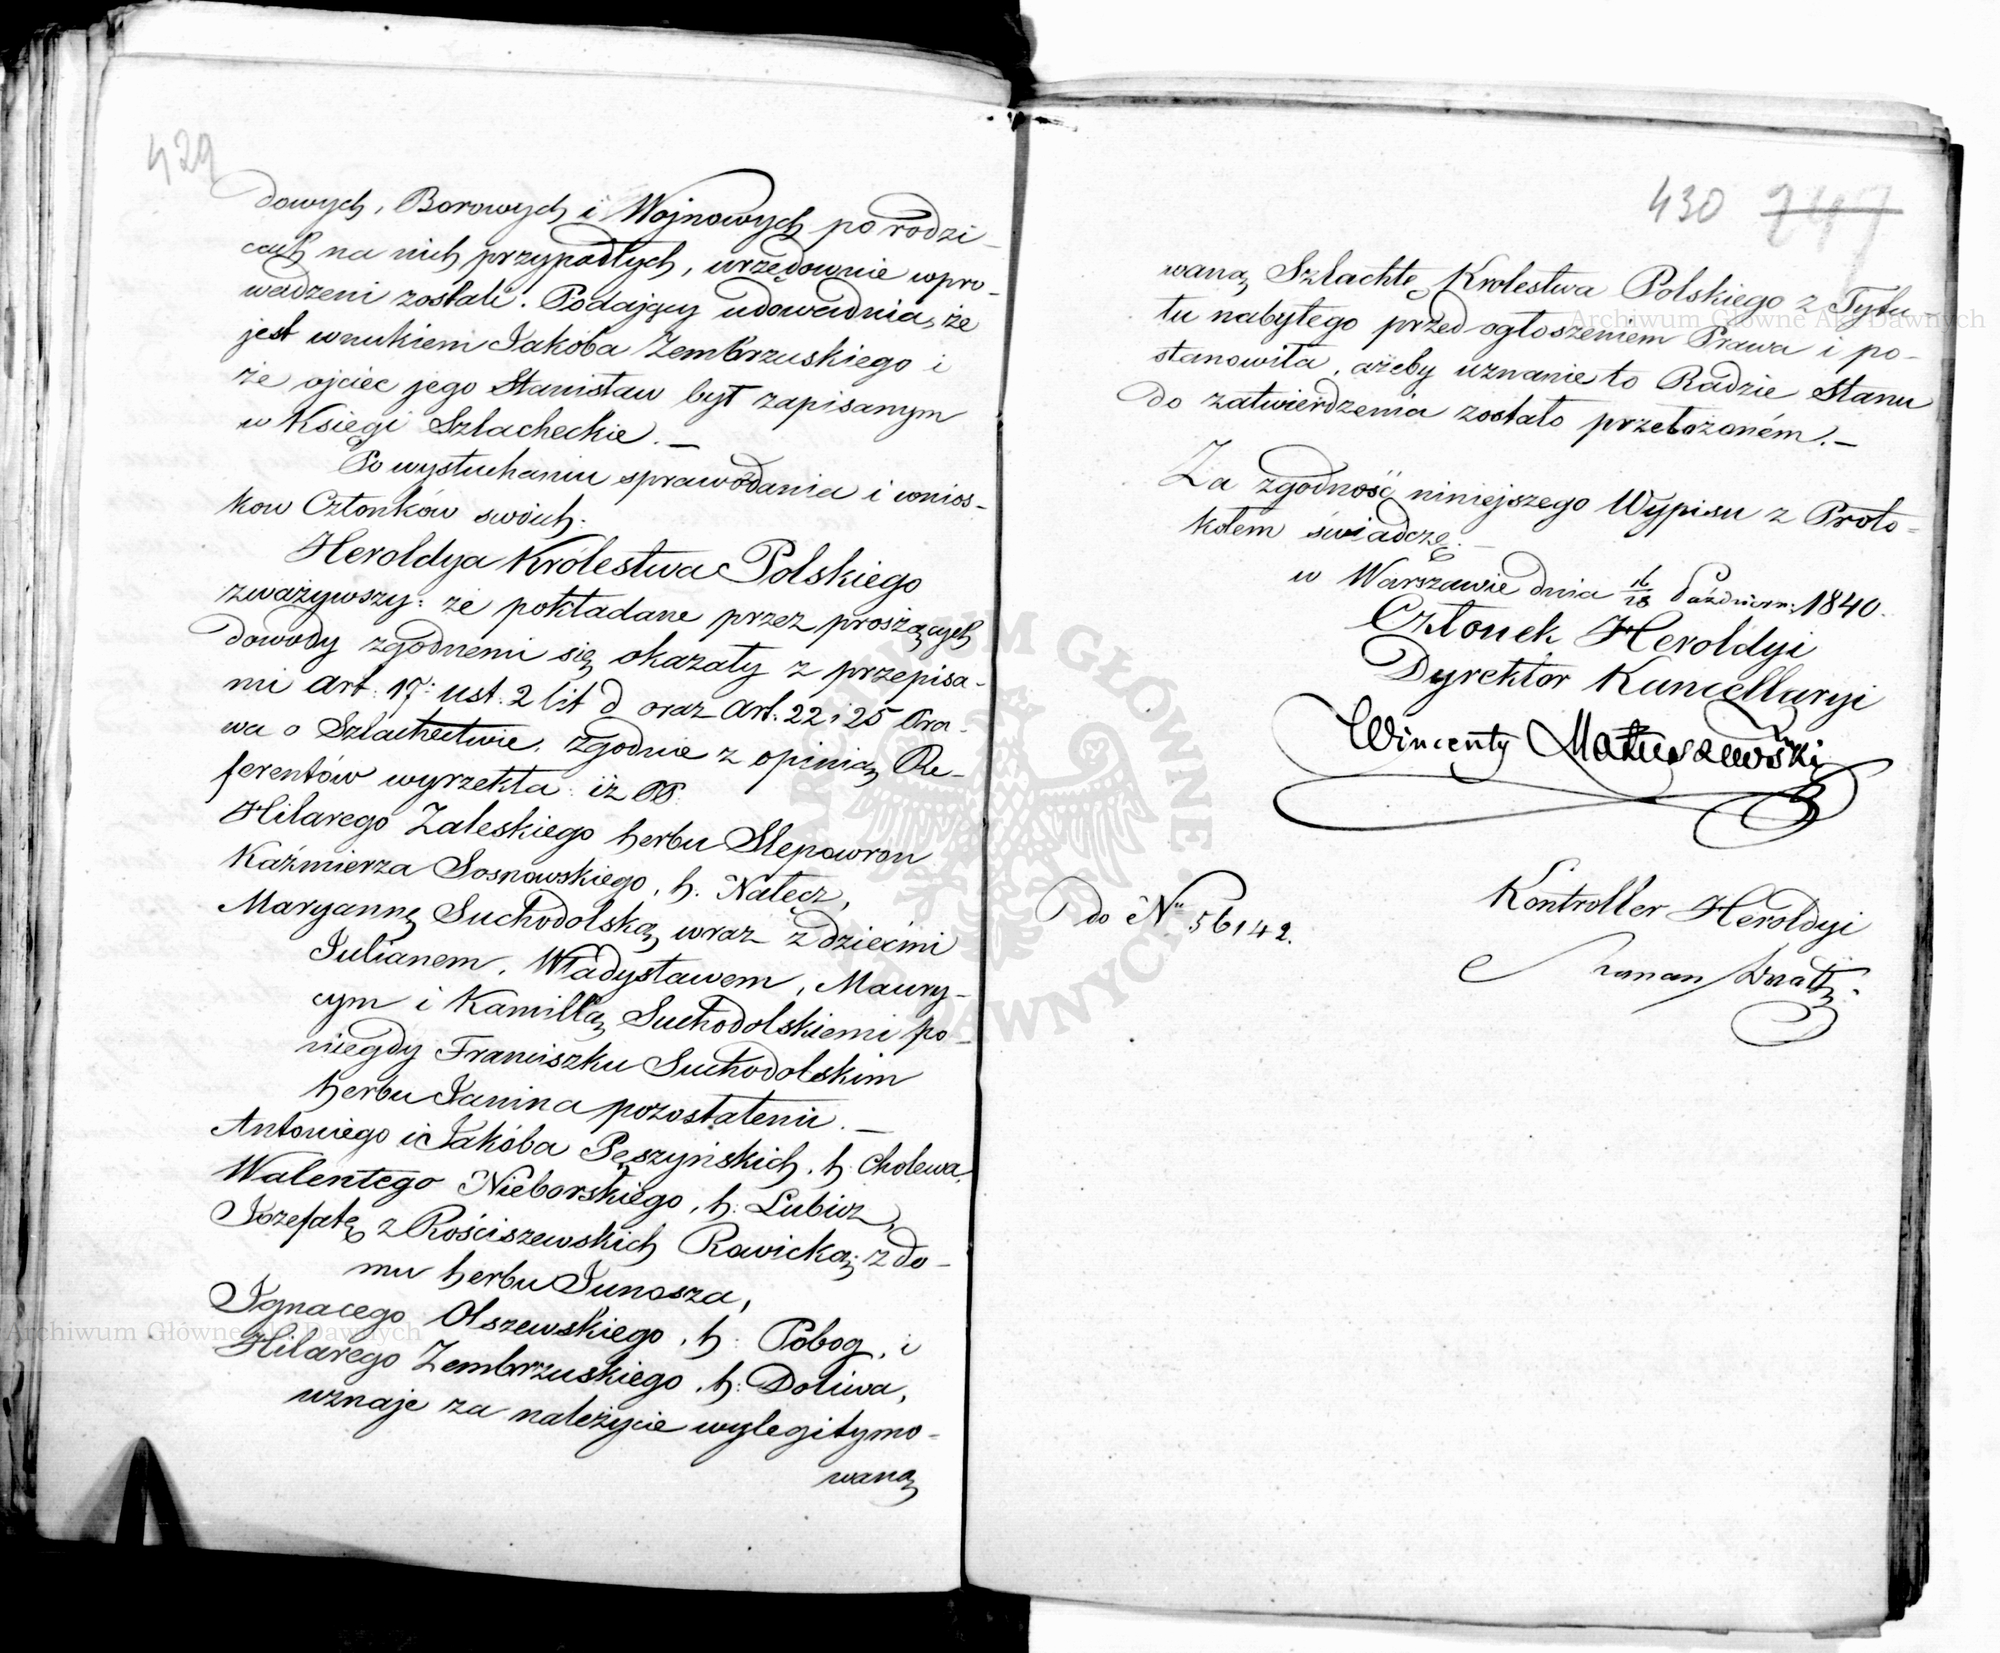 429
dowych, Borowych i Wojnowych po rodzi-
cach na nich przypadłych, urzędownie wpro-
wadzeni zostali. Podający udowadnia, że
jest wnukiem Jakóba Zembrzuskiego i
że ojciec jego Stanisław był zapisanym
w Księgi Szlacheckie. —
Po wysłuchaniu sprawozdania i wnios-
kow Członków swoich.
Heroldya Królestwa Polskiego
zważywszy: że pokładane przez proszących
dowody zgodnemi się okazały z przepisa-
mi art: 17: ust: 2 lit d oraz art. 22 i 25 Pra-
wa o Szlachectwie, zgodnie z opinią Re-
ferentów wyrzekła: iż PP.
Hilarego Zaleskiego herbu Slepowron
Kaźmierza Sosnowskiego, h. Nałęcz,
Maryannę Suchodolską wraz z dziećmi
Julianem, Władysławem, Maury-
cym i Kamillą Suchodolskiemi po
niegdy Franciszku Suchodolskim
herbu Janina pozostałemi. —
Antoniego i Jakóba Pęszyńskich, h. Cholewa,
Walentego Nieborskiego, h: Lubicz,
Jozefatę z Rościszewskich Rawicką; z do-
mu herbu Junosza,
Ignacego Olszewskiego, h: Pobog, i
Hilarego Zembrzuskiego, h: Doliwa,
uznaje za należycie wylegitymo-
waną
430 747
waną Szlachtę Krolestwa Polskiego z Tytu-
łu nabytego przed ogłoszeniem Prawa i po-
stanowiła, ażeby uznanie to Radzie Stanu
do zatwierdzenia zostało przełożoném. —
Za zgodność niniejszego Wypisu z Proto-
kołem świadczę. —
w Warszawie dnia 16/28 Październ: 1840.
Członek Heroldyi
Dyrektor Kancellaryi
Wincenty Matuszewski
do Nu 56142.
Kontroller Heroldyi
Archiwum Główne Akt Dawnych
Archiwum Główne Akt Dawnych
ARCHIWUM GŁÓWNE AKT DAWNYCH